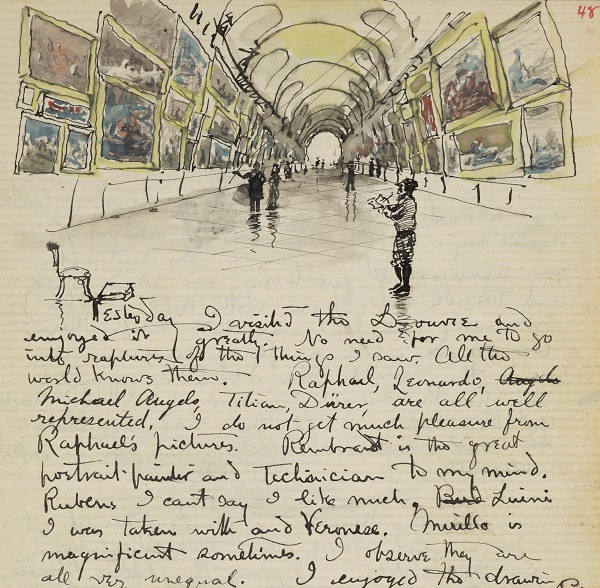 48
Yesterday I visited the Louvre and
enjoyed it greatly. No need for me to go
into raptures of the things I saw. All the
world knows them. Raphael, Leonardo, Angelo
Michael Angelo, Titian, Dürer, are all well
represented. I do not get much pleasure from
Raphael's pictures. Rembrant is the great
portrait-painter and Technician to my mind.
Rubens I cant say I like much. Luini
I was taken with and Veronese. Murillo is
magnificent sometimes. I observe they are
all very unequal. I enjoyed the drawin